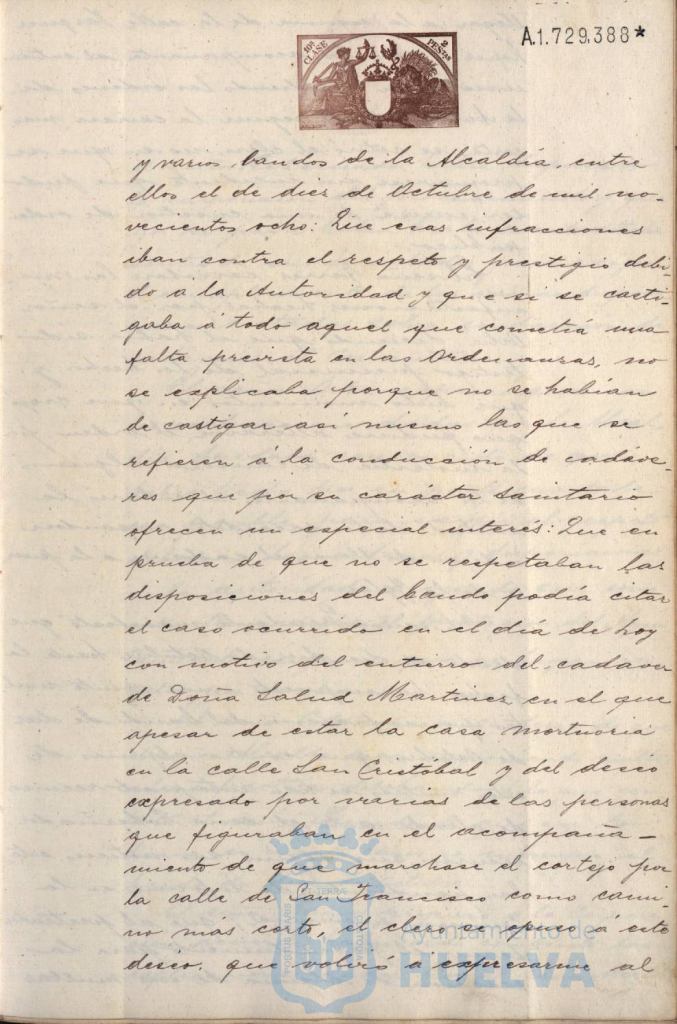 A.1.729.388*
10ª CLASE
2 PESETAS
y varios bandos de la Alcaldía, entre
ellos el de diez de Octubre de mil no-
vecientos ocho: Que esas infracciones
iban contra el respeto y prestigio debi-
do a la Autoridad y que si se casti-
gaba á todo aquel que cometía una
falta prevista en las Ordenanzas, no
se explicaba porque no se habían
de castigar así mismo las que se
refieren á la conducción de cadáve-
res que por su carácter sanitario
ofrecen un especial interés: Que en
prueba de que no se respetaban las
disposiciones del bando podía citar
el caso ocurrido en el día de hoy
con motivo del entierro del cadaver
de Doña Salud Martinez en el que
apesar de estar la casa mortuoria
en la calle San Cristóbal y del deseo
expresado por varias de las personas
que figuraban en el acompaña-
miento de que marchase el cortejo por
la calle de San Francisco como cami-
no más corto, el clero se opuso á este
deseo, que volvió a expresarme al
Ayuntamiento de
HUELVA